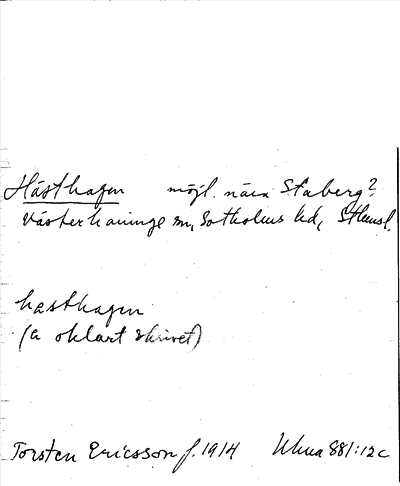 Hästhagen möjl. nära Staberg?
Västerhaninge sn, Sotholms hd, Sthlmsl.
hasthagen
(a oklart skrivet)
Torsten Ericsson f. 1914 Uhua 881:12c